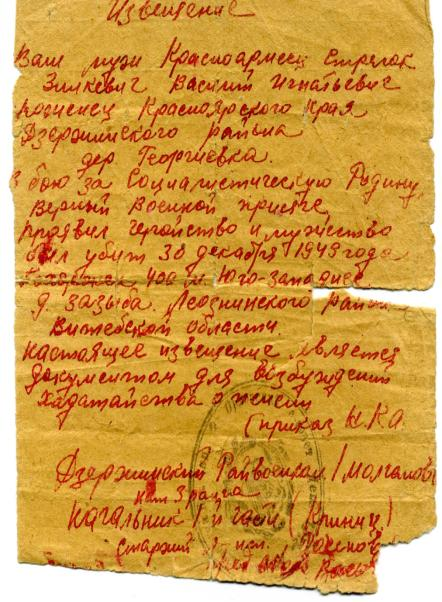 Извещение
Ваш муж Красноармеец Стрелок
Зинкевич Василий Игнатьевич
уроженец Красноярского Края
Дзержинского района
дер Георгиевка.
В бою за Социалистическую Родину,
верный военной присяге,
проявил геройство и мужество
был убит 30 декабря 1943 года
400 м. Юго-Западнее
д. Зазыба Лиознинского района
Витебской области.
настоящее извещение является
документом для возбуждения
ходатайства о пенсии
(приказ Н.К.О.
Дзержинский Райвоенком
начальник 1й части
старший